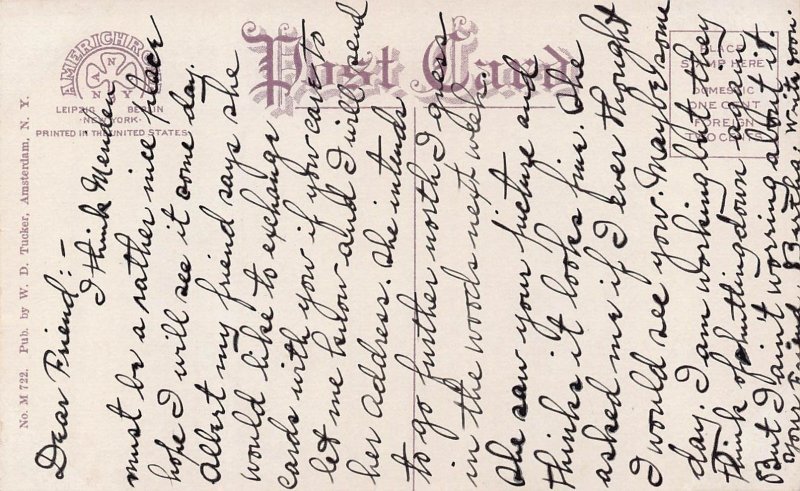 AMERICHROME
LEIPZIG BERLIN
NEW YORK
PRINTED IN THE UNITED STATES
Post Card
PLACE
STAMP HERE
DOMESTIC
ONE CENT
FOREIGN
TWO CENTS
No. M 722. Pub. by W. D. Tucker, Amsterdam, N. Y.
Dear Friend:-
I think Menden
must be a rather nice place
hope I will see it some day.
Albert my friend says she
would like to exchange
cards with you if you care to
let me know and I will send
her address. She intends
to go further north I guess
in the woods next week.
She saw your picture and
thinks it looks fine. She
asked me if I ever thought
I would see you. Maybe some
day. I am working but they
think of shutting down again.
But I ain't worring about it.
Your Friend Bertha. Write soon.